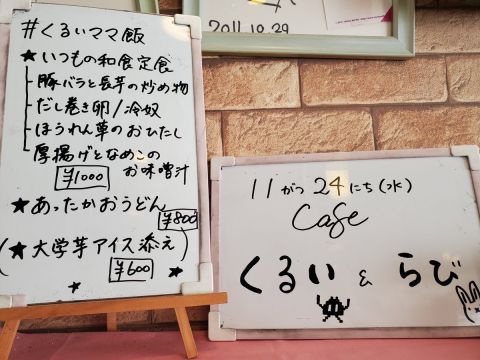 2011.10.29
#くるいママ飯
★いつもの和食定食
豚バラと長芋の炒め物
だし巻き卵/冷奴
ほうれん草のおひたし
厚揚げとなめこの
お味噌汁
¥1000
★あったかおうどん
¥800
(★大学芋アイス添え)
¥600
11がつ24にち(水)
Cafe
くるい & らび